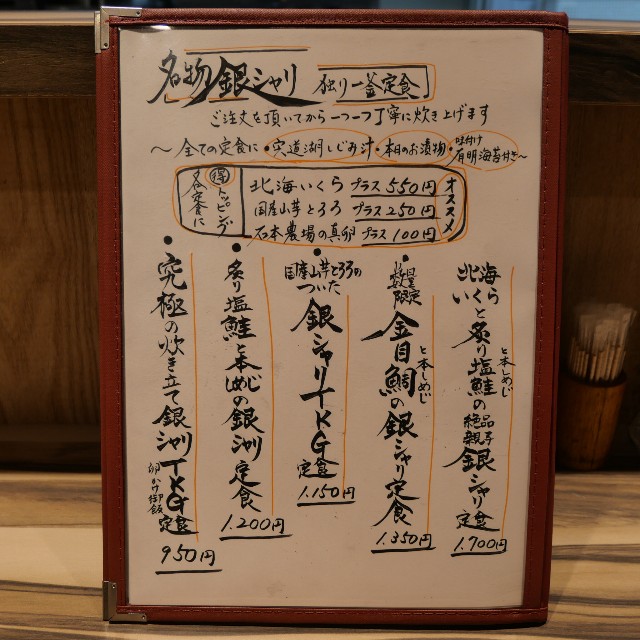 名物銀シャリ 独り一釜定食
ご注文を頂いてから一つ一つ丁寧に炊き上げます
～全ての定食に・宍道湖しじみ汁・本日のお漬物・味付け有明海苔付き～
各定食に
得トッピング
北海いくら プラス550円
国産山芋とろろ プラス250円
石本農場の真卵 プラス100円
オススメ
北海いくらと炙り塩鮭と本しめじの絶品親子銀シャリ定食
1.700円
・数量限定 金目鯛と本しめじの銀シャリ定食
1.350円
・国産山芋とろろのついた銀シャリTKG定食
1.150円
・炙り塩鮭と本しめじの銀シャリ定食
1.200円
・究極の炊き立て銀シャリTKG定食
卵かけ御飯
950円